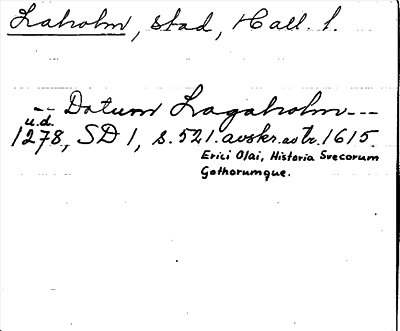 Laholm, stad, Hall. l.
-- Datum Lagaholm ---
u.d.
1278, SD 1, s. 521. avskr. as tr. 1615.
Erici Olai, Historia Svecorum
Gothorumque.